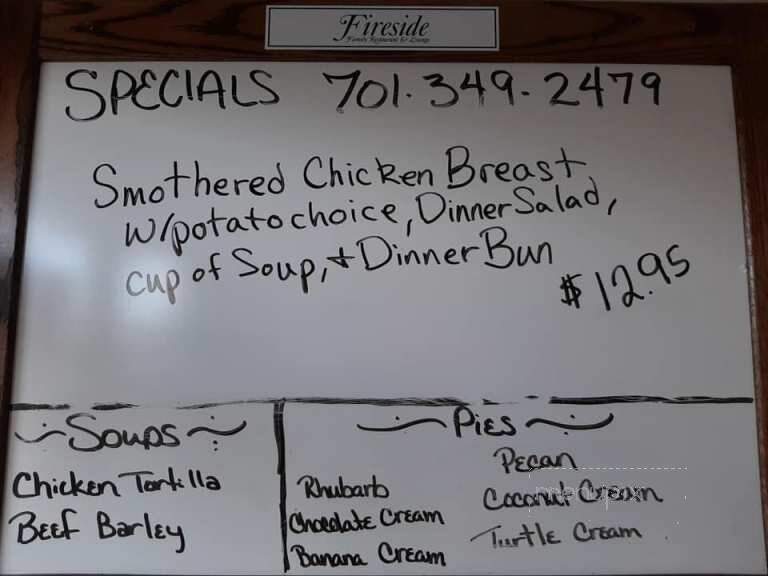 Fireside
Family Restaurant & Lounge
SPECIALS 701.349.2479
Smothered Chicken Breast
W/potato choice, Dinner Salad,
cup of Soup, + Dinner Bun
$12.95
Soups
Chicken Tortilla
Beef Barley
Pies
Rhubarb
Chocolate Cream
Banana Cream
Pecan
Coconut Cream
Turtle Cream